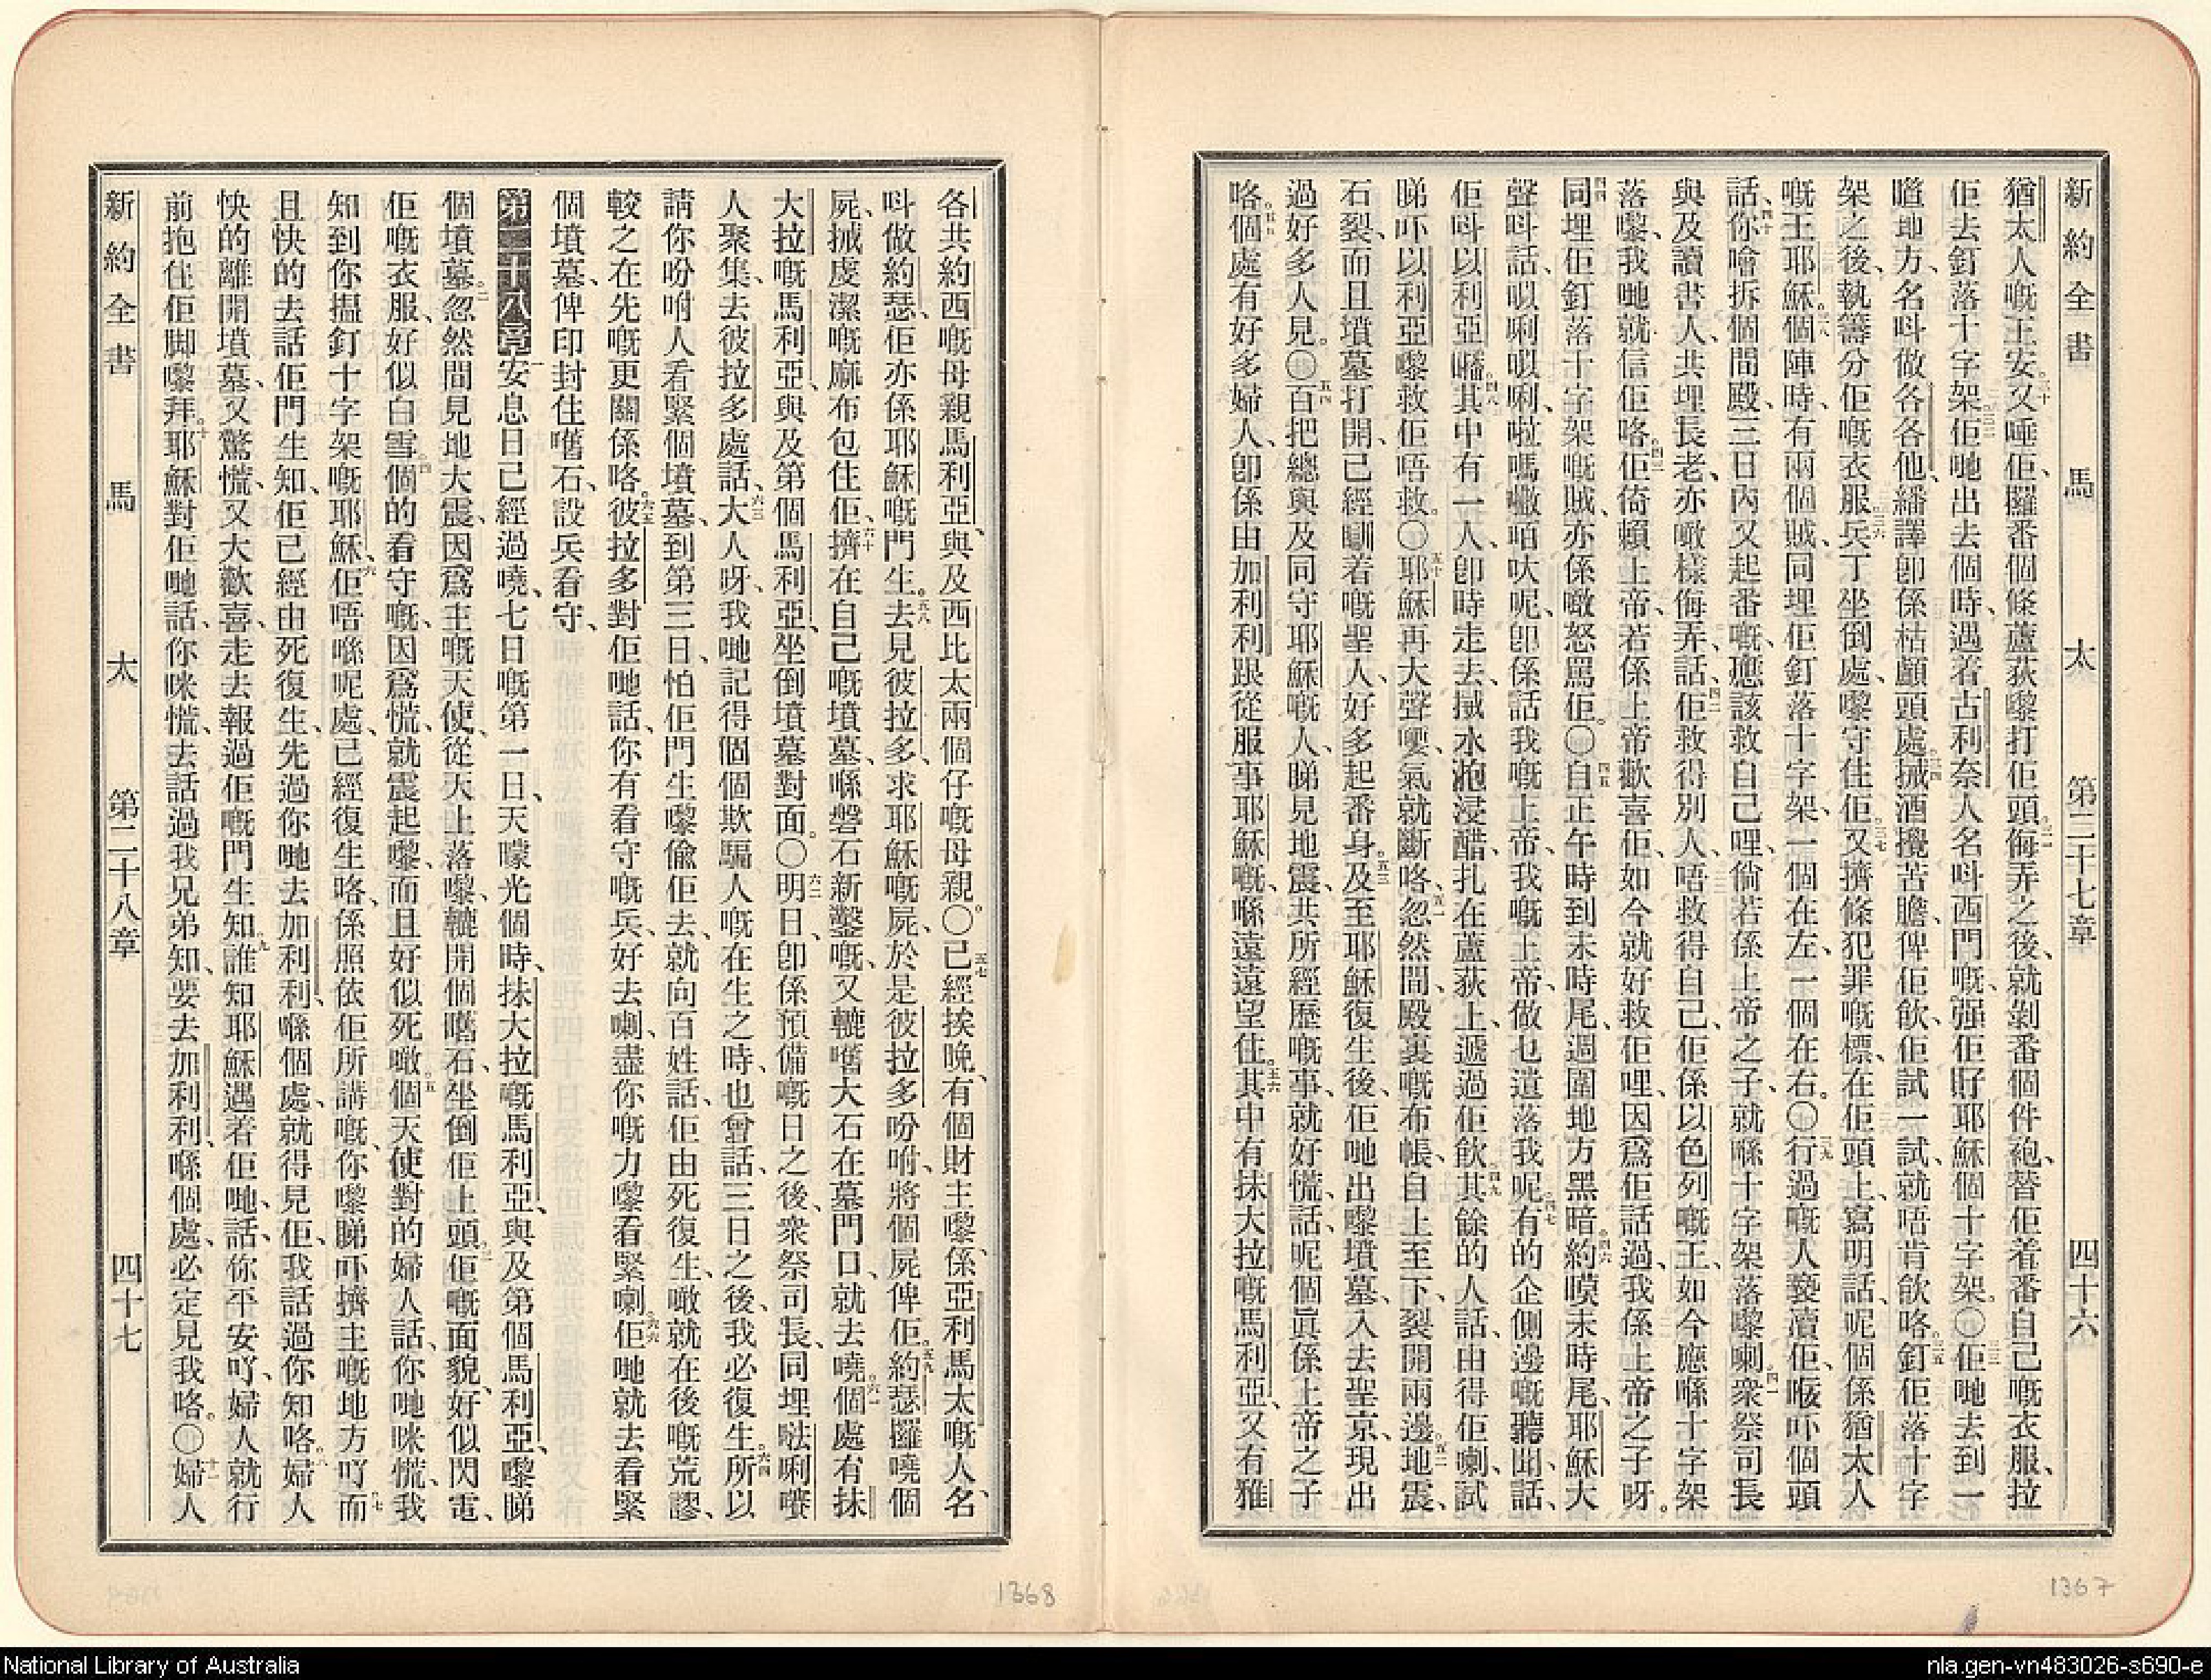 新約全書 馬太 第二十七章 四十六
猶太人嘅王安。三十又唾佢、攞番個條蘆荻嚟打佢頭。三一侮弄之後、就剝番個件袍、替佢着番自己嘅衣服、拉
佢去釘落十字架。三二佢哋出去個時、遇着古利奈人名呌西門嘅、强佢孭耶穌個十字架。〇三三佢哋去到一
噡地方、名呌做各各他、繙譯卽係枯顱頭處。三四搣酒攪苦膽、俾佢飲、佢試一試、就唔肯飲咯。三五釘佢落十字
架之後、執籌分佢嘅衣服。三六兵丁坐倒處、嚟守住佢。三七又擠條犯罪嘅標、在佢頭上、寫明話、呢個係猶太人
嘅王耶穌。三八個陣時、有兩個賊、同埋佢釘落十字架、一個在左、一個在右。〇三九行過嘅人褻瀆佢、㖡吓個頭
話、四十你噲拆個間殿、三日內又起番嘅、應該救自己哩、倘若係上帝之子、就喺十字架落嚟喇。四一衆祭司長
與及讀書人、共埋長老、亦噉樣侮弄、話、四二佢救得別人、唔救得自己、佢係以色列嘅王、如今應喺十字架
落嚟、我哋就信佢咯。四三佢倚賴上帝、若係上帝歡喜佢、如今就好救佢哩、因爲佢話過、我係上帝之子呀。
四四同埋佢釘落十字架嘅賊、亦係噉怒罵佢。〇四五自正午時到未時尾、週圍地方黑暗。四六約嘆未時尾、耶穌大
聲呌話、以唎以唎、啦嗎㘔㗑吠呢、卽係話我嘅上帝、我嘅上帝、做乜遺落我呢。四七有的企側邊嘅聽聞、話、
佢呌以利亞噃。四八其中有一人、卽時走去、搣水泡浸醋、扎在蘆荻上、遞過佢飲。四九其餘的人話、由得佢喇、試
睇吓以利亞嚟救佢唔救。〇五十耶穌再大聲嗌、氣就斷咯。五一忽然間、殿裏嘅布帳、自上至下、裂開兩邊。五二地震、
石裂、而且墳墓打開、已經瞓着嘅聖人、好多起番身。五三及至耶穌復生後、佢哋出嚟墳墓、入去聖京、現出
過好多人見。〇五四百把總與及同守耶穌嘅人、睇見地震、共所經歷嘅事、就好慌、話、呢個眞係上帝之子
咯。五五個處有好多婦人、卽係由加利利跟從服事耶穌嘅、喺遠遠望住。五六其中有抹大拉嘅馬利亞、又有雅
各共約西嘅母親馬利亞、與及西比太兩個仔嘅母親。〇五七已經挨晚、有個財主嚟、係亞利馬太嘅人、名
呌做約瑟、佢亦係耶穌嘅門生。五八去見彼拉多、求耶穌嘅屍、於是彼拉多吩咐、將個屍俾佢。五九約瑟攞嘵個
屍、搣虔潔嘅蔴布包住佢、六十擠在自己嘅墳墓、喺磐石新鑿嘅、又轆嚿大石在墓門口、就去嘵。六一個處有抹
大拉嘅馬利亞、與及第個馬利亞、坐倒墳墓對面。〇六二明日、卽係預備嘅日之後、衆祭司長、同埋𠵽唎㘔
人聚集、去彼拉多處話、六三大人呀、我哋記得個個欺騙人嘅、在生之時、也曾話、三日之後、我必復生。六四所以
請你吩咐人看緊個墳墓、到第三日、怕佢門生嚟偸佢去、就向百姓話、佢由死復生、噉就在後嘅荒謬、
較之在先嘅更關係咯。六五彼拉多對佢哋話、你有看守嘅兵、好去喇、盡你嘅力嚟看緊喇。六六佢哋就去看緊
個墳墓、俾印封住嚿石、設兵看守、
第二十八章 一安息日已經過嘵、七日嘅第一日、天矇光個時、抹大拉嘅馬利亞、與及第個馬利亞、嚟睇
個墳墓。二忽然間見地大震、因爲主嘅天使、從天上落嚟、轆開個嚿石、坐倒佢上頭。三佢嘅面貌、好似閃電、
佢嘅衣服、好似白雪。四個的看守嘅、因爲慌、就震起嚟、而且好似死噉。五個天使對的婦人話、你哋咪慌、我
知到你搵釘十字架嘅耶穌、六佢唔喺呢處、已經復生咯、係照依佢所講嘅、你嚟睇吓擠主嘅地方吖。七而
且快的去話佢門生知、佢已經由死復生、先過你哋去加利利、喺個處、就得見佢、我話過你知咯。八婦人
快的離開墳墓、又驚慌、又大歡喜、走去報過佢嘅門生知。九誰知耶穌遇着佢哋、話、你平安吖、婦人就行
前抱住佢脚嚟拜。十耶穌對佢哋話、你咪慌、去話過我兄弟知、要去加利利、喺個處、必定見我咯。〇十一婦人
新約全書 馬太 第二十八章 四十七
1368
1367
National Library of Australia
nla.gen-vn483026-s690-e